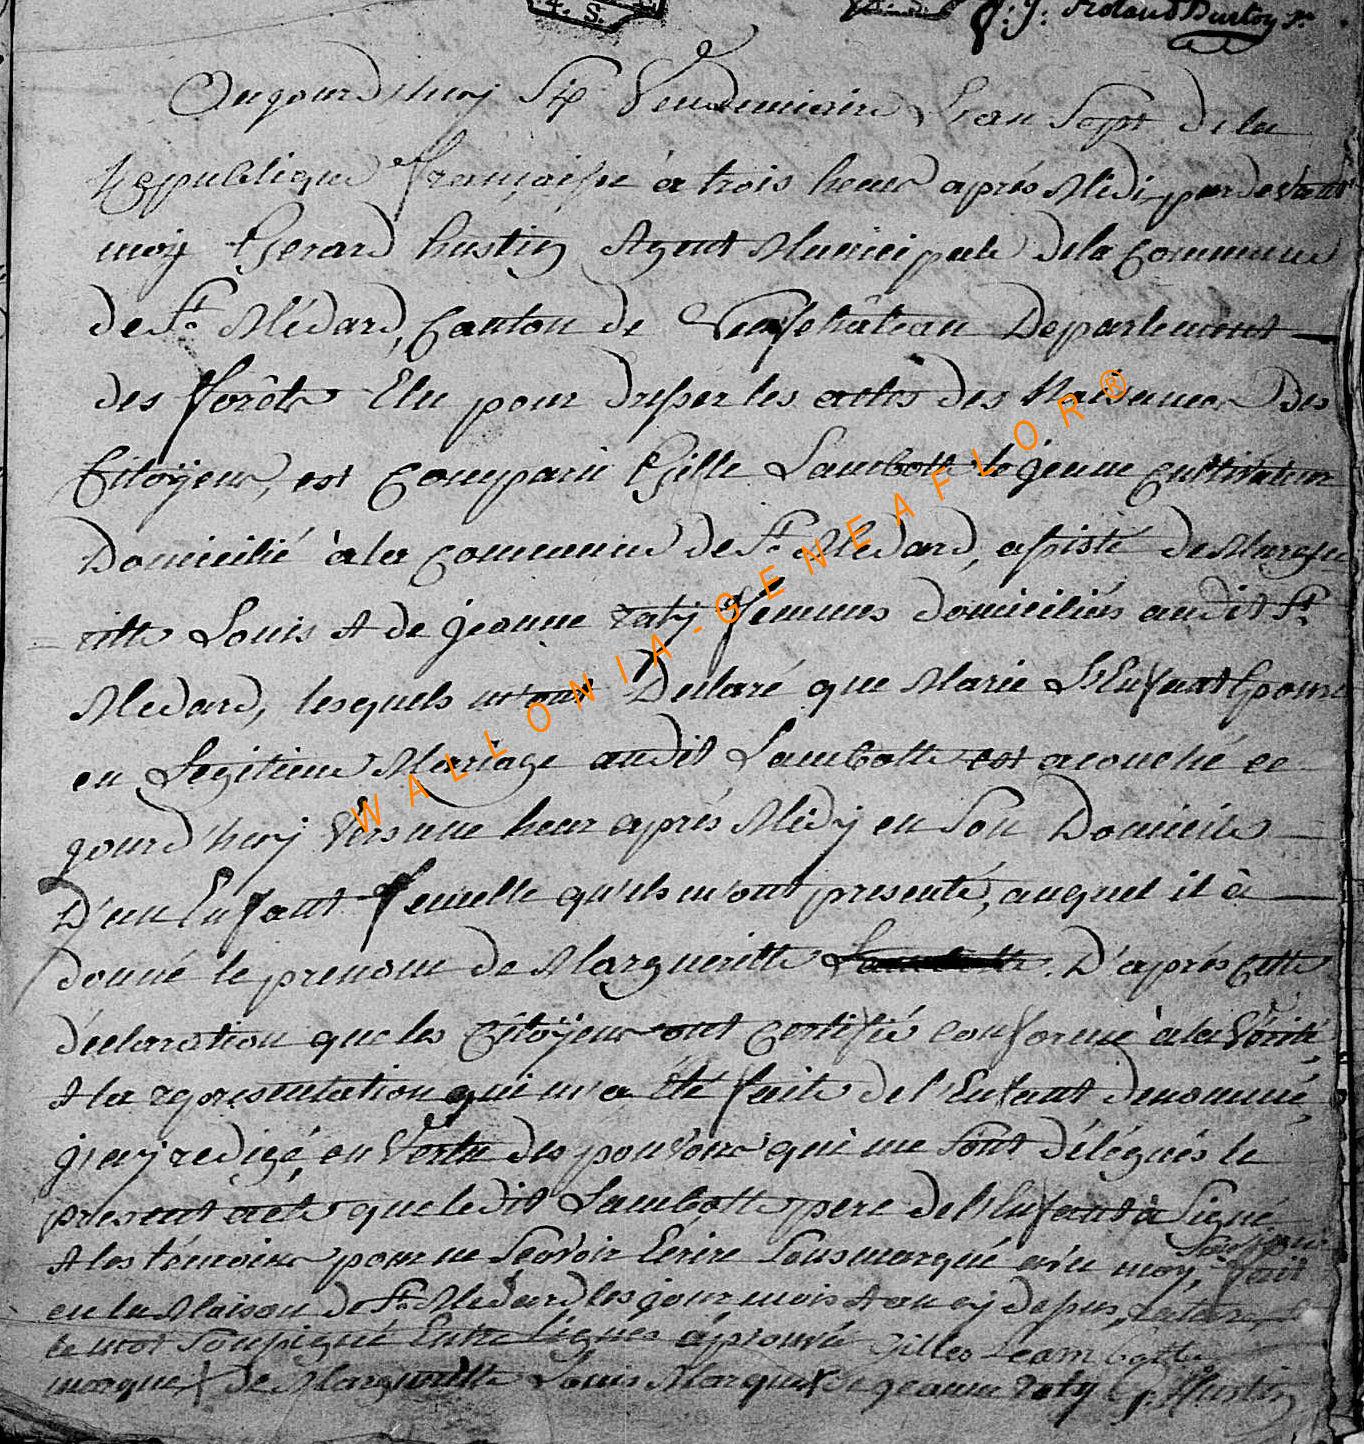 J: J: Roland Burton
Aujourd'huy Six Vendemiaire L'an Sept de la
Republique françaisse à trois heur après Midi pardevant
moy Gerard hustin Agent Municipale de la Commune
de St. Médard, Canton de Neufchâteau Departement
des forêts Elu pour dresser les actes des Naissances Des
Citoyens, est Comparu Gille Lambott le jeune Cultivateur
Domicilié à la Commune de St. Medard, assisté de Margue
ritte Louis & de jeanne raty femmes domiciliés audit St.
Medard, lesquels m'ont Déclaré que Marie L'Enfant Epouse
en Legitime Mariage audit Lambotte est acouché ce
jourd'huy Vers une heur après Midy en Son Domicile
D'un Enfant femelle qu'ils m'ont presenté, auquel il à
donné le prenom de Margueritte Lambotte. D'après Cette
déclaration que les Citoyens ont Certifié conforme à la Verité,
& la representation qui m'a été faite de l'Enfant denommé,
j'ay redigé, en Vertu des pouvoirs qui me Sont délégués le
present acte que ledit Lambotte pere de l'Enfant à Signé
& les témoins pour ne Scavoir Ecrire Sousmarqué avec moy, Fait
en la Maison de St. Medard les jour mois & an cy depus,
le mot Soussigné Entre lignes aprouvé Gilles Lambotte
marque X de Margueritte Louis Marque X de jeanne raty G. Hustin
WALLONIA-GENEAFLOR®